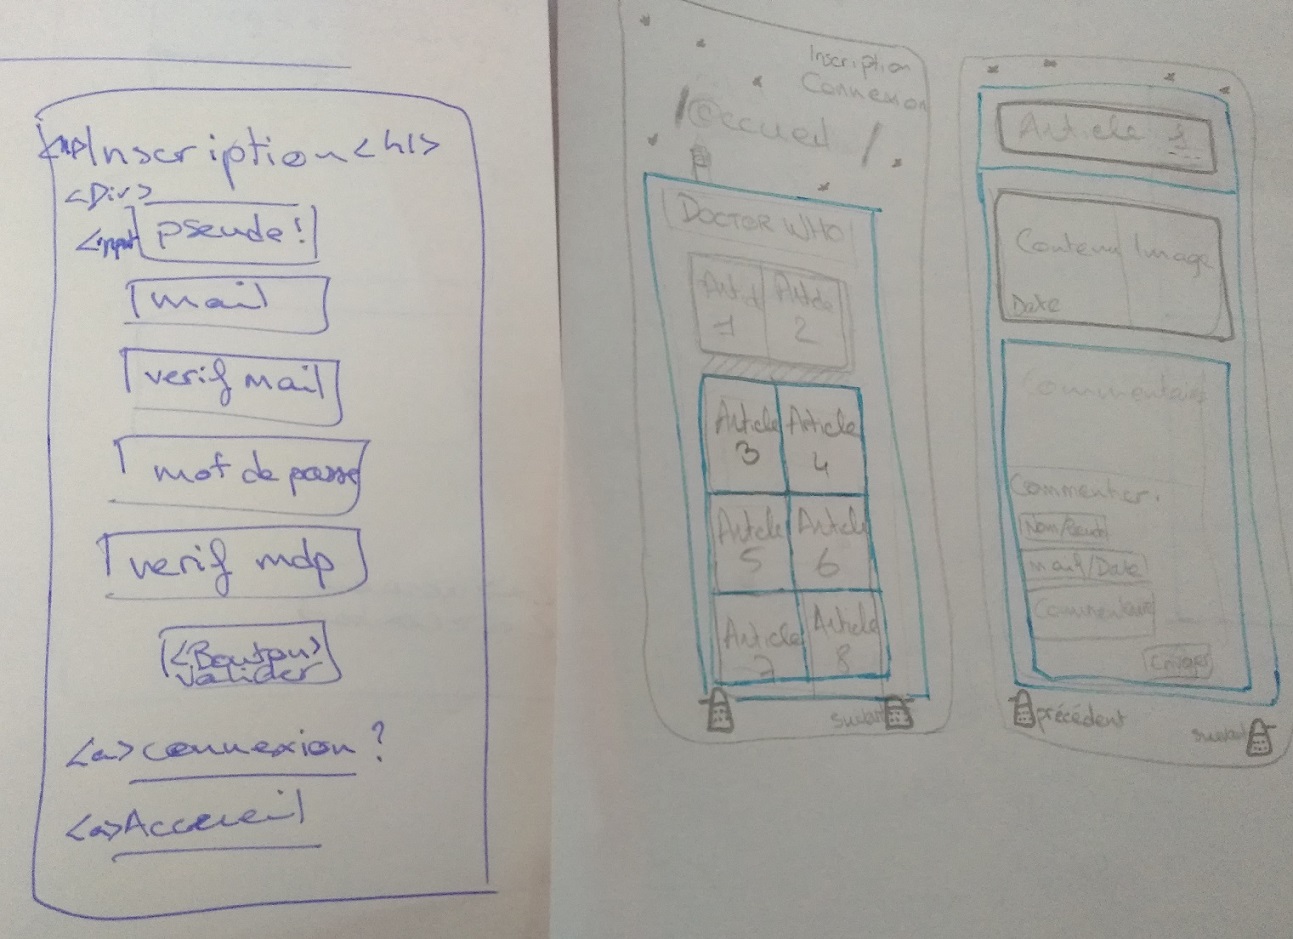 Inscription <h1>
<Div>
<input pseudo!
mail
verif mail
mot de passe
verif mdp
<Bouton>
valider
<a> connexion ?
<a> Accueil
Inscription
Connexion
@ccueil
DOCTOR WHO
Article 2
1
Article 3
Article 4
Article 5
Article 6
Article 7
Article 8
suivant
Article 1
Contenu Image
Date
Commentaires
Commenter.
Nom/Pseudo
mail/Date
Commentaire
Envoyer
précédent
suivant